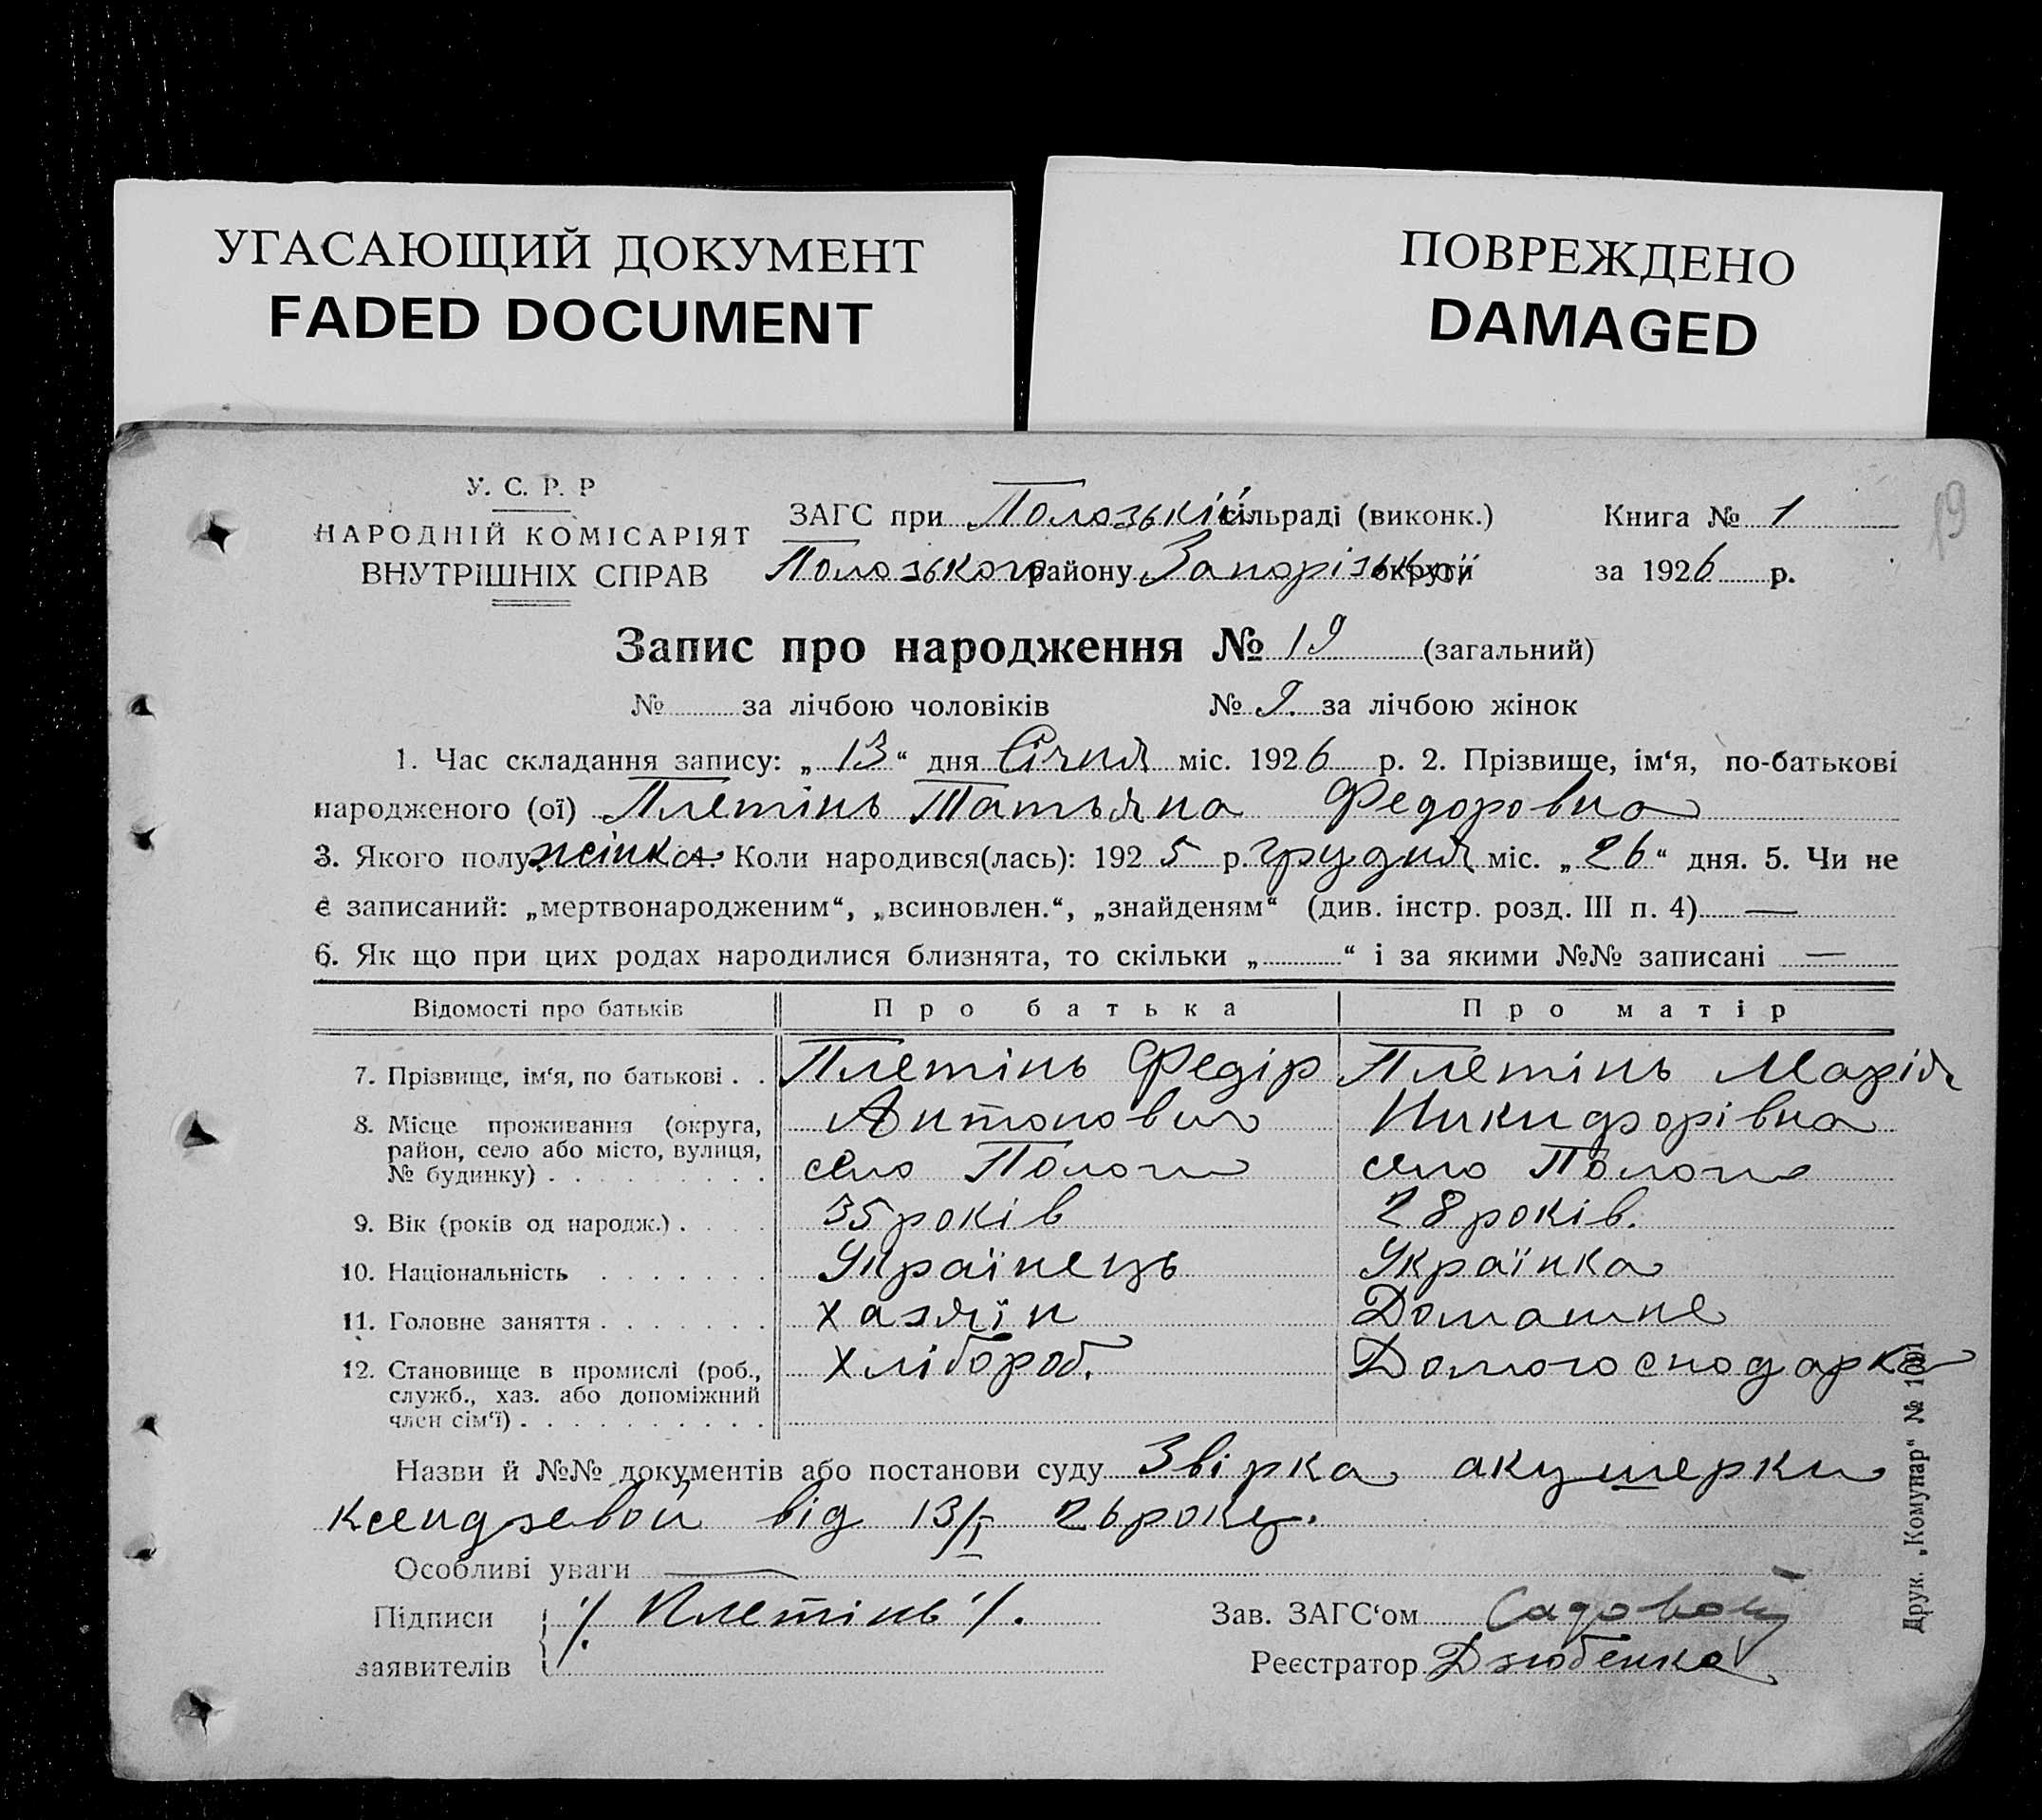 УГАСАЮЩИЙ ДОКУМЕНТ
FADED DOCUMENT
ПОВРЕЖДЕНО
DAMAGED
19
У. С. Р. Р
НАРОДНІЙ КОМІСАРІЯТ
ВНУТРІШНІХ СПРАВ
ЗАГС при Полозькій сільраді (виконк.)
Полозького району Запорізької округи
Книга № 1
за 1926 р.
Запис про народження № 19 (загальний)
№ за лічбою чоловіків № 9. за лічбою жінок
1. Час складання запису: „ 13 “ дня Січня міс. 1926 р. 2. Прізвище, ім‘я, по-батькові
народженого (ої) Плетінь Татьяна Федоровна
3. Якого полу жінка Коли народився(лась): 1925 р. грудня міс. „ 26 “ дня. 5. Чи не
є записаний: „мертвонародженим“, „всиновлен.“, „знайденям“ (див. інстр. розд. III п. 4) —
6. Як що при цих родах народилися близнята, то скільки „ “ і за якими №№ записані —
Відомості про батьків Про батька Про матір
7. Прізвище, ім‘я, по батькові . . Плетінь Федір Плетінь Марія
8. Місце проживання (округа, Антонович Никифорівна
район, село або місто, вулиця, село Пологи село Пологи
№ будинку) . . . . . . . . .
9. Вік (років од народж.) . . . . 35 років 28 років.
10. Національність . . . . . . . Українець Українка
11. Головне заняття . . . . . . . хазяїн Домашнє
12. Становище в промислі (роб., хлібороб. Домогосподарка
служб., хаз. або допоміжний
член сім‘ї) . . . . . . . . . .
Назви й №№ документів або постанови суду Звірка акушерки
Ксендзевой від 13/I 26 року.
Особливі уваги —
Підписи ·/· Плетінь ·/· Зав. ЗАГС‘ом Садовой
заявителів Реєстратор Дзюбенко
Друк. „Комунар“ № 1091